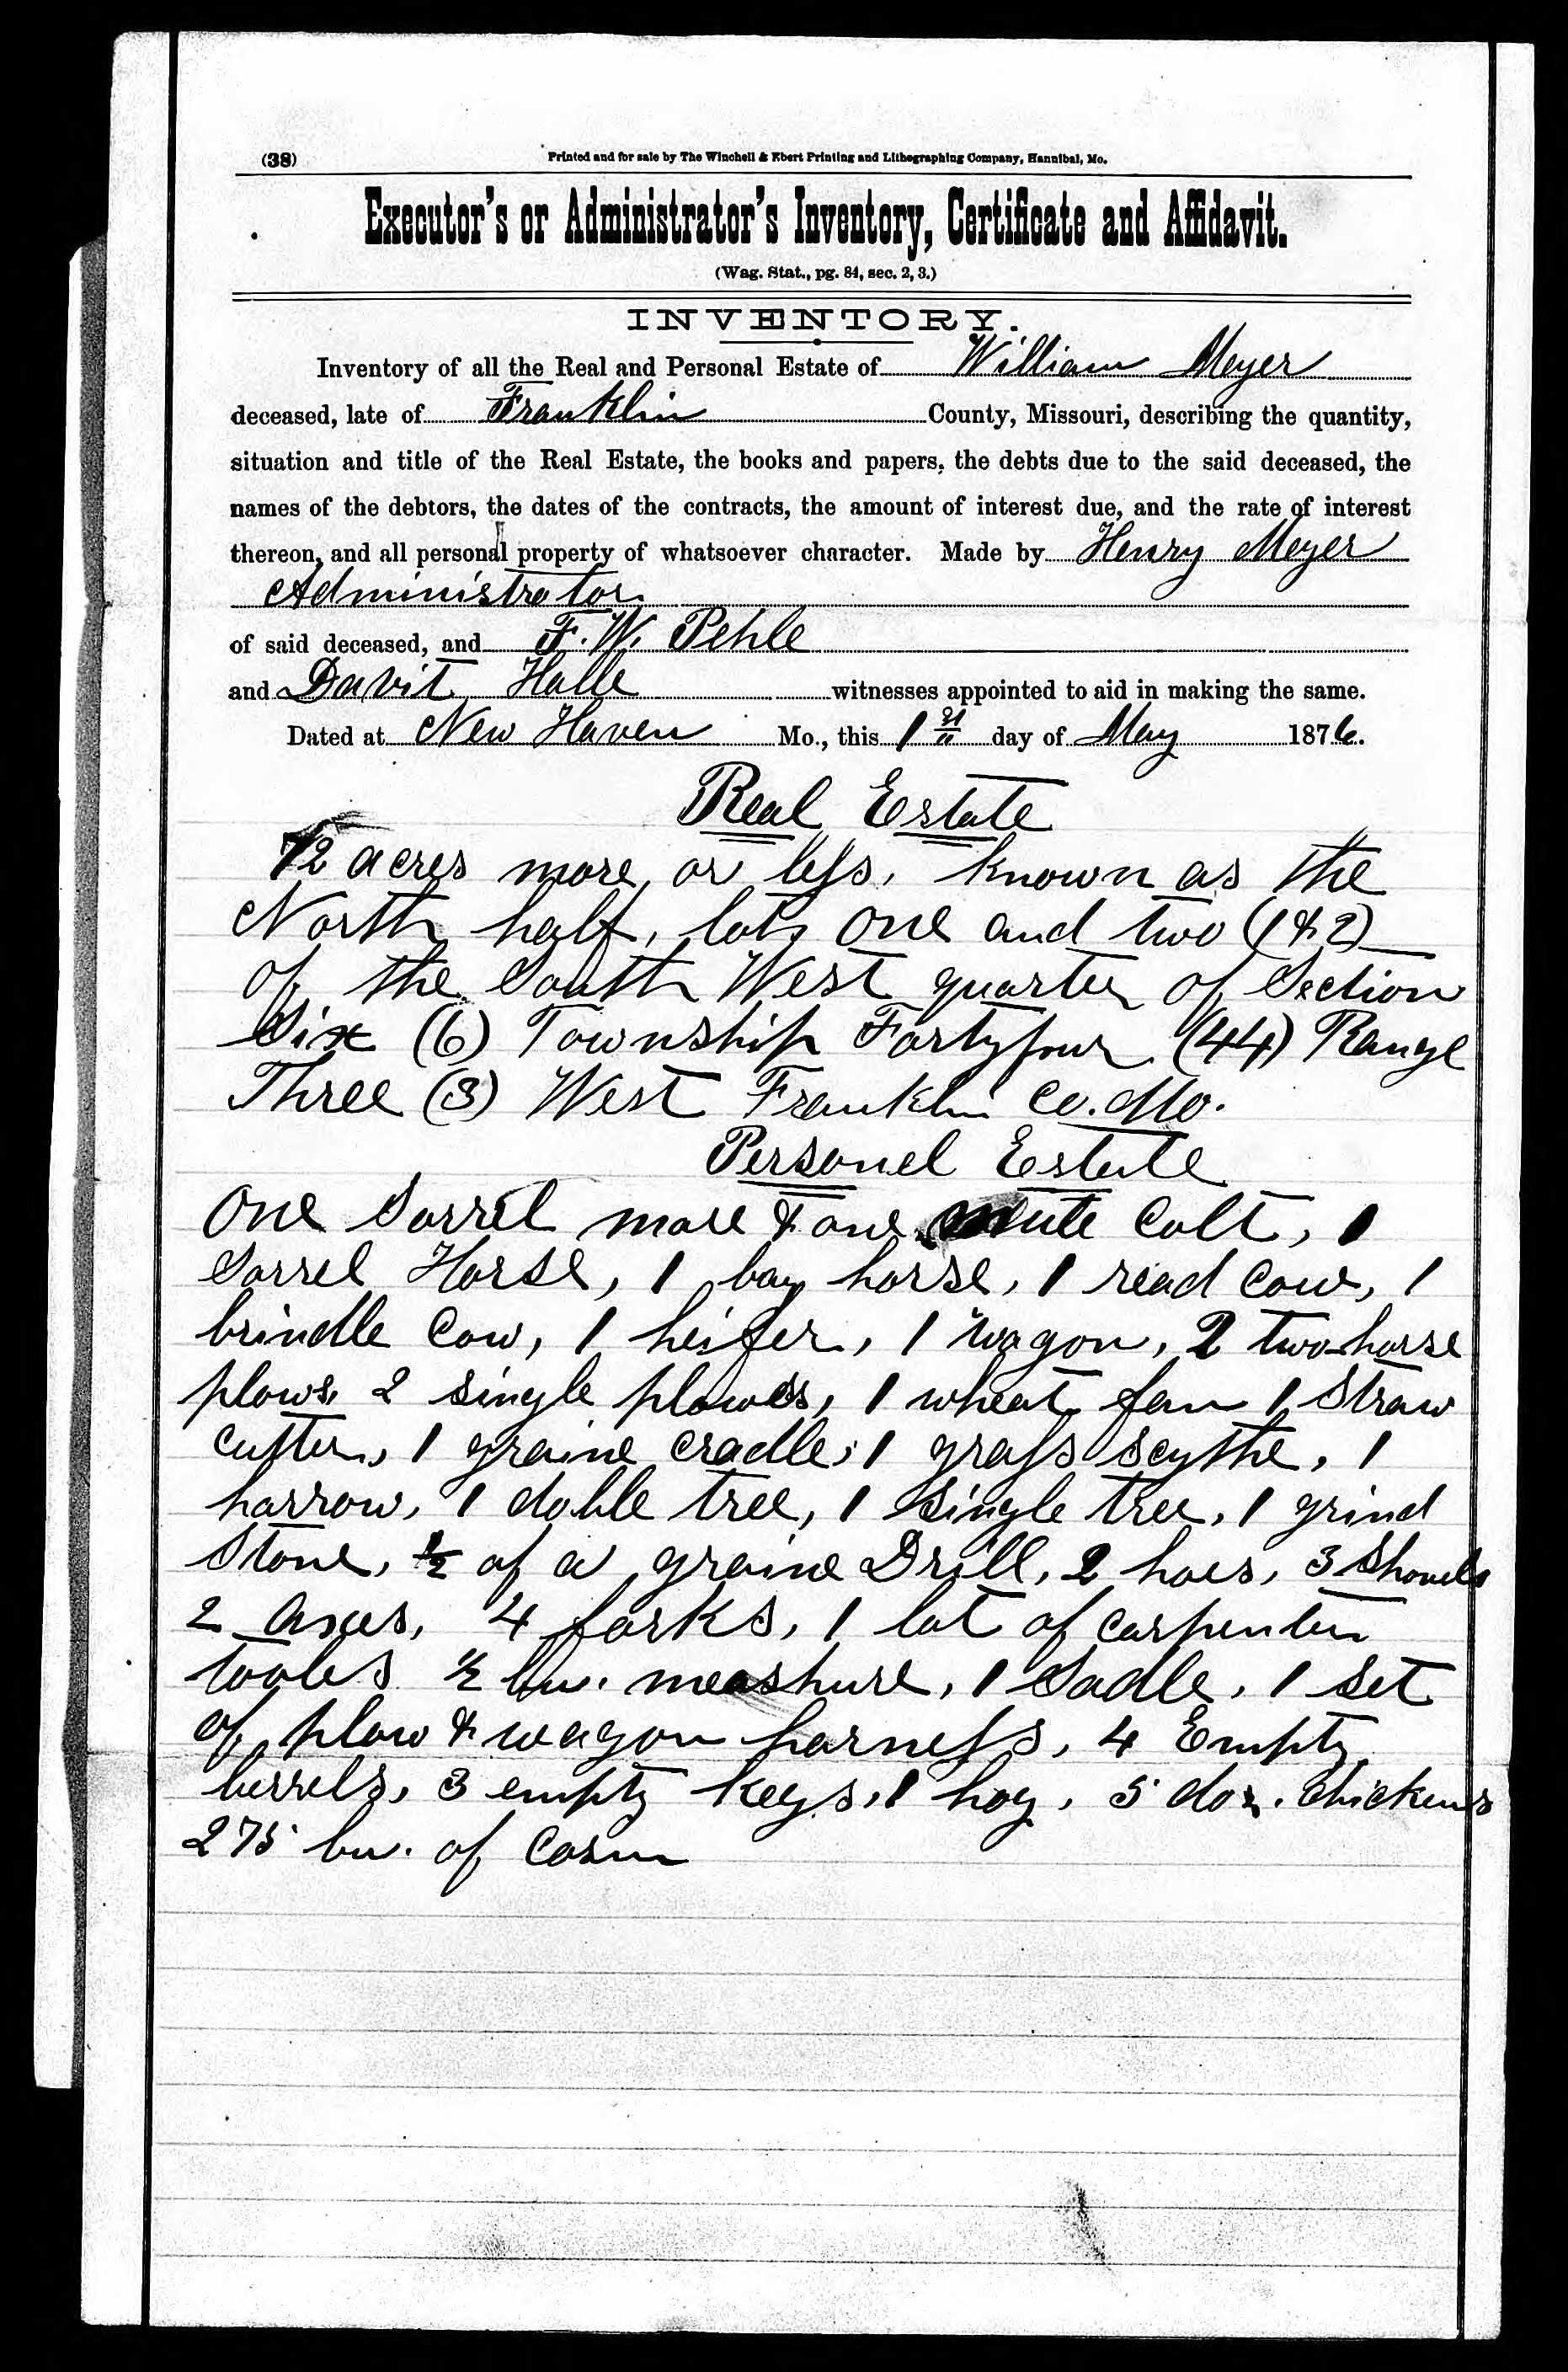 (38)
Printed and for sale by The Winchell & Ebert Printing and Lithographing Company, Hannibal, Mo.
Executor's or Administrator's Inventory, Certificate and Affidavit.
(Wag. Stat., pg. 84, sec. 2, 3.)
INVENTORY.
Inventory of all the Real and Personal Estate of William Meyer
deceased, late of Franklin County, Missouri, describing the quantity,
situation and title of the Real Estate, the books and papers, the debts due to the said deceased, the
names of the debtors, the dates of the contracts, the amount of interest due, and the rate of interest
thereon, and all personal property of whatsoever character. Made by Henry Meyer
Administrator
of said deceased, and F. W. Pehle
and Davit Halle witnesses appointed to aid in making the same.
Dated at New Haven Mo., this 1st day of May 1876.
Real Estate
72 acres more or less, known as the
North half, lots one and two (1 & 2)
of the South West quarter of Section
Six (6) Township Fortyfour (44) Range
Three (3) West Franklin Co. Mo.
Personel Estate
One Sorrel mare & one mule Colt, 1
Sorrel Horse, 1 bay horse, 1 read Cow, 1
brindle Cow, 1 heifer, 1 wagon, 2 two-horse
plows, 2 single plows, 1 wheat fan 1 Straw
Cutter, 1 graine cradle, 1 grass scythe, 1
harrow, 1 doble tree, 1 single tree, 1 grind
Stone, 1/2 of a graine Drill, 2 hoes, 3 Shovels
2 Axes, 4 forks, 1 lot of carpenter
tooles 1/2 bu. meashure, 1 Sadle, 1 set
of plow & wagon harness, 4 Empty
berrels, 3 empty kegs, 1 hog, 5 doz. Chickens
275 bu. of Corn